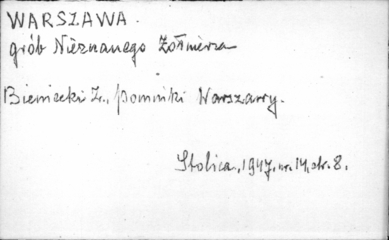 WARSZAWA.
grób Nieznanego Żołnierza
Bieniecki Z., Pomniki Warszawy.
Stolica, 1947, nr. 14, str. 8.